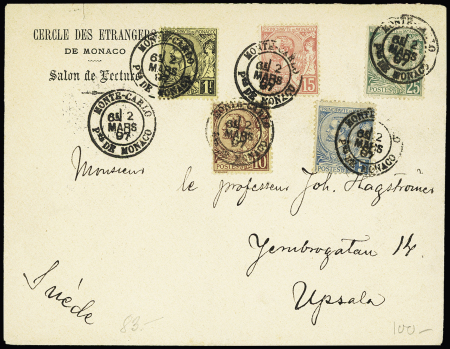 CERCLE DES ETRANGERS
DE MONACO
Salon de Lecture
MONTE-CARLO
2
MARS
97
PTÉ DE MONACO
1F
MONTE-CARLO
2
MARS
97
PTÉ DE MONACO
15
MONTE-CARLO
2
MARS
97
PTÉ DE MONACO
25
MONTE-CARLO
2
MARS
97
PTÉ DE MONACO
POSTES
10
MONTE-CARLO
2
MARS
97
POSTES
MARS
97
PTÉ DE MONACO
Monsieur le professeur Joh. Hagströmer
Jernbrogatan 14.
Upsala
Suède
83.-
100.-